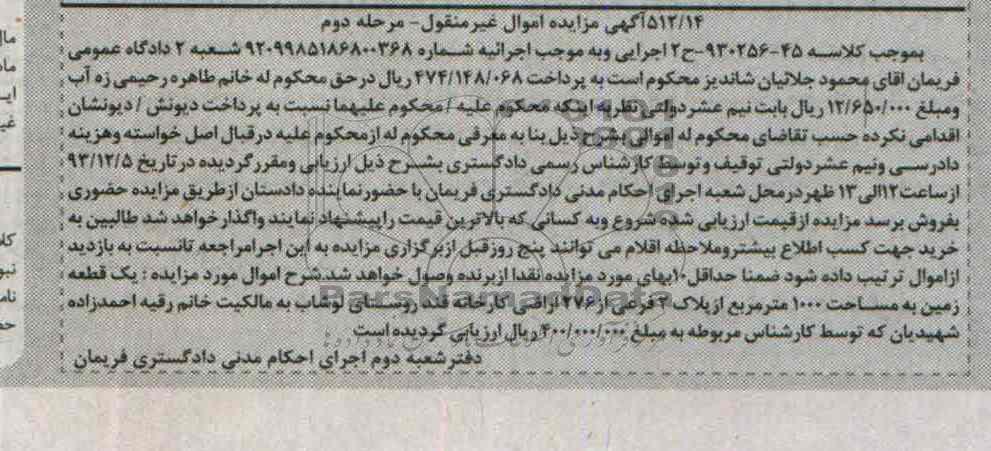 ۵۱۲/۱۴آگهی مزایده اموال غیرمنقول- مرحله دوم
بموجب کلاسه ۴۵-۹۳۰۲۵۶-ح۲ اجرایی وبه موجب اجرائیه شماره ۹۲۰۹۹۸۵۱۸۶۸۰۰۳۶۸ شعبه ۲ دادگاه عمومی
فریمان اقای محمود جلائیان شاندیز محکوم است به پرداخت ۴۷۴/۱۴۸/۰۶۸ ریال درحق محکوم له خانم طاهره رحیمی زه آب
ومبلغ ۱۲/۶۵۰/۰۰۰ ریال بابت نیم عشردولتی نظربه اینکه محکوم علیه / محکوم علیهما نسبت به پرداخت دیونش / دیونشان
اقدامی نکرده حسب تقاضای محکوم له اموالی بشرح ذیل بنا به معرفی محکوم له ازمحکوم علیه درقبال اصل خواسته وهزینه
دادرسی ونیم عشردولتی توقیف وتوسط کارشناس رسمی دادگستری بشرح ذیل ارزیابی ومقررگردیده درتاریخ ۹۳/۱۲/۵
ازساعت۱۲الی ۱۳ ظهردرمحل شعبه اجرای احکام مدنی دادگستری فریمان با حضورنماینده دادستان ازطریق مزایده حضوری
بفروش برسد مزایده ازقیمت ارزیابی شده شروع وبه کسانی که بالاترین قیمت راپیشنهاد نمایند واگذار خواهد شد طالبین به
خرید جهت کسب اطلاع بیشتروملاحظه اقلام می توانند پنج روزقبل ازبرگزاری مزایده به این اجرامراجعه تانسبت به بازدید
ازاموال ترتیب داده شود ضمنا حداقل۱۰بهای مورد مزایده نقدا ازبرنده وصول خواهد شد.شرح اموال مورد مزایده : یک قطعه
زمین به مساحت ۱۰۰۰ مترمربع ازپلاک فرعی از۲۷۶ اراضی کارخانه قند روستای لوشاب به مالکیت خانم رقیه احمدزاده
شهیدیان که توسط کارشناس مربوطه به مبلغ ۴۰۰/۰۰۰/۰۰۰ ریال ارزیابی گردیده است
دفترشعبه دوم اجرای احکام مدنی دادگستری فریمان
ParsNamadData